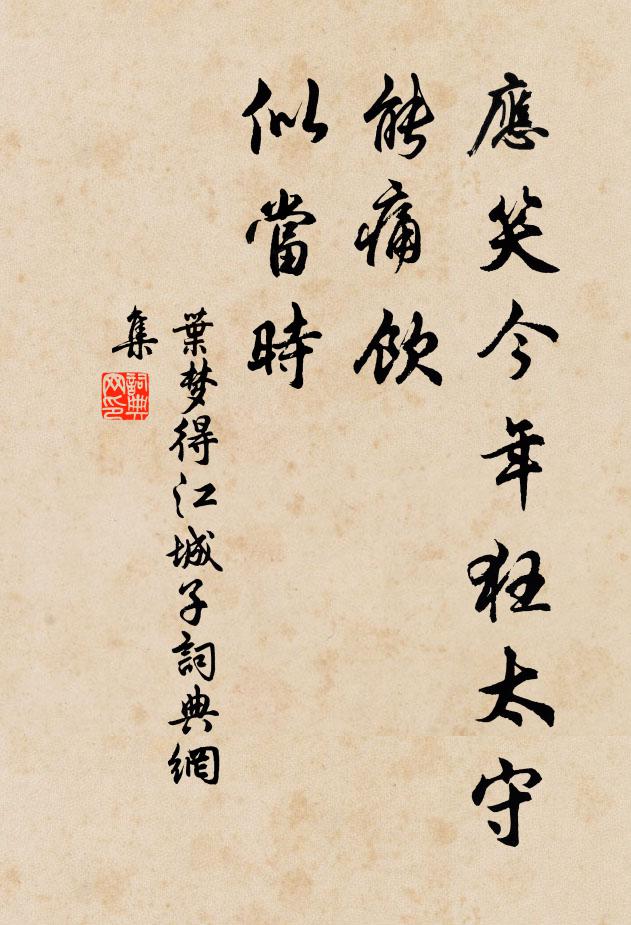 應笑今年狂太守
能痛飲
似當時
葉梦得江城子詞典網
集
詞典
网印